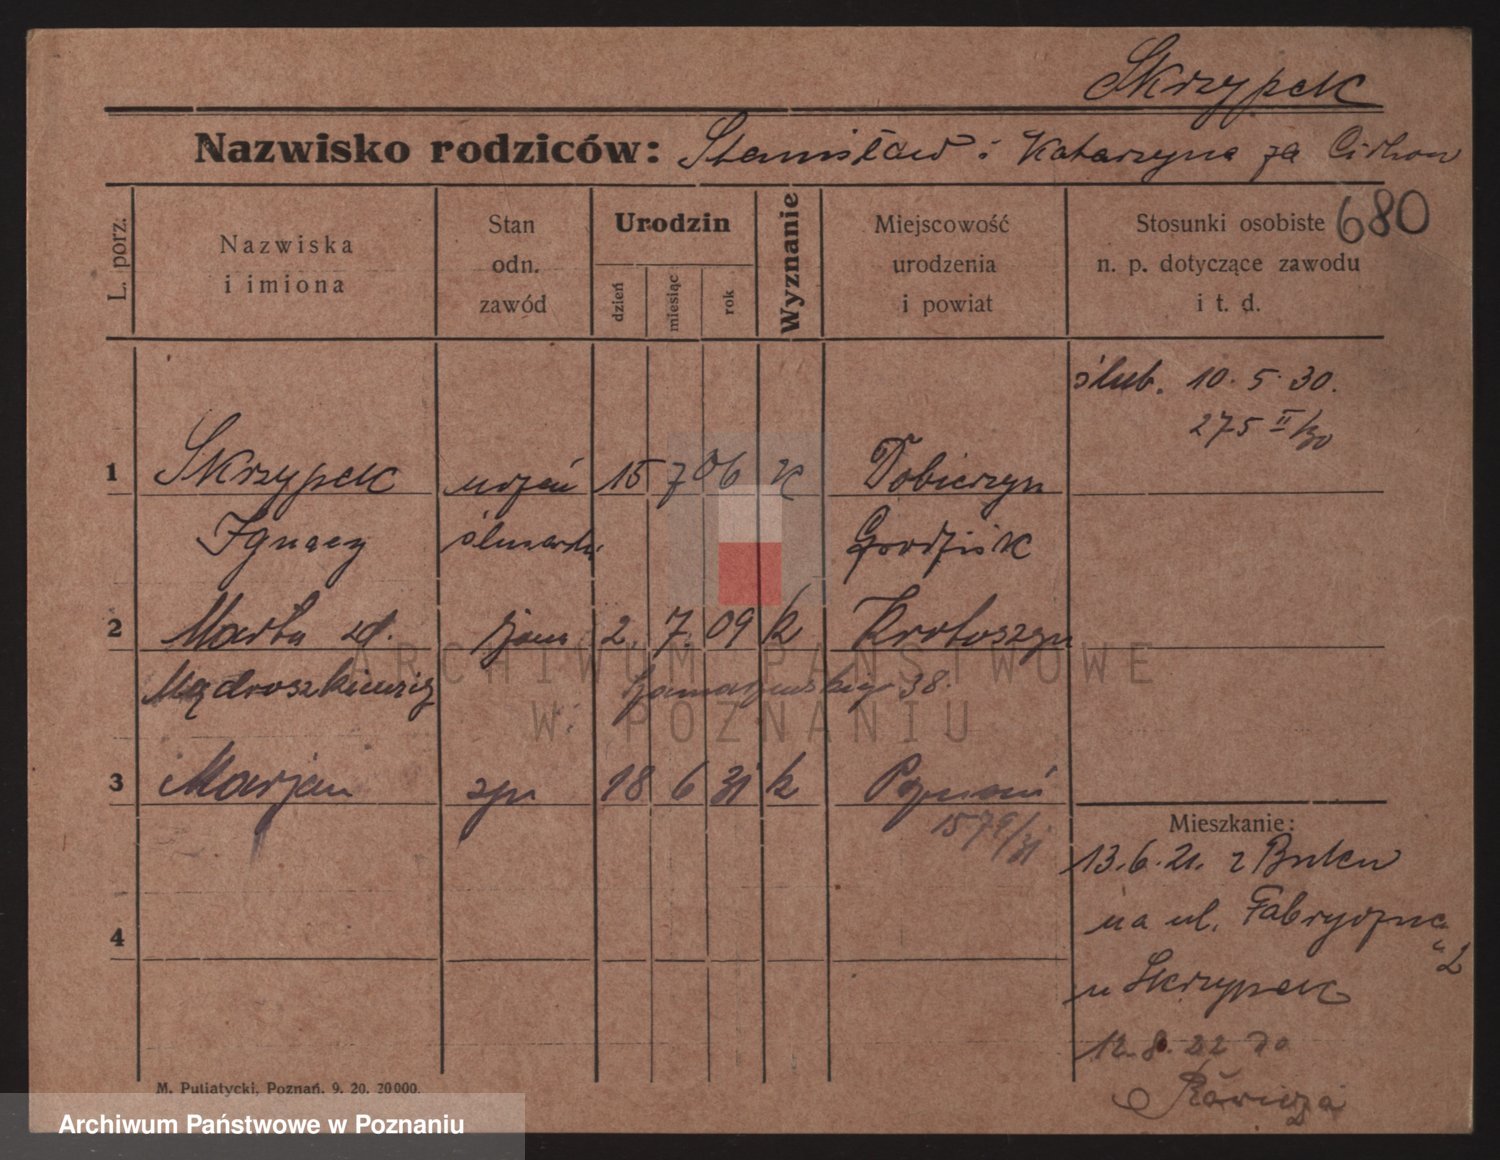 Skrzypek
Nazwisko rodziców: Stanisław i Katarzyna za Cichon
680
L. porz.
Nazwiska i imiona
Stan odn. zawód
Urodzin
dzień
miesiąc
rok
Wyznanie
Miejscowość urodzenia i powiat
Stosunki osobiste n. p. dotyczące zawodu i t. d.
ślub. 10. 5. 30.
275 II/30
1 Skrzypek uczeń 15 7 06 k Dobieżyn
Ignacy ślusarski Grodzisk
2 Marta żona 2. 7. 09 k Krotoszyn
38.
3 Marjan syn 18 6 31 k Poznań
1579/31
4
Mieszkanie:
13. 6. 21. z Buku
na ul. Fabryczna 2
u Skrzypek
12. 8. 22 do
Rawicza
M. Putiatycki, Poznań. 9. 20. 20000.
ARCHIWUM PAŃSTWOWE
W POZNANIU
Archiwum Państwowe w Poznaniu